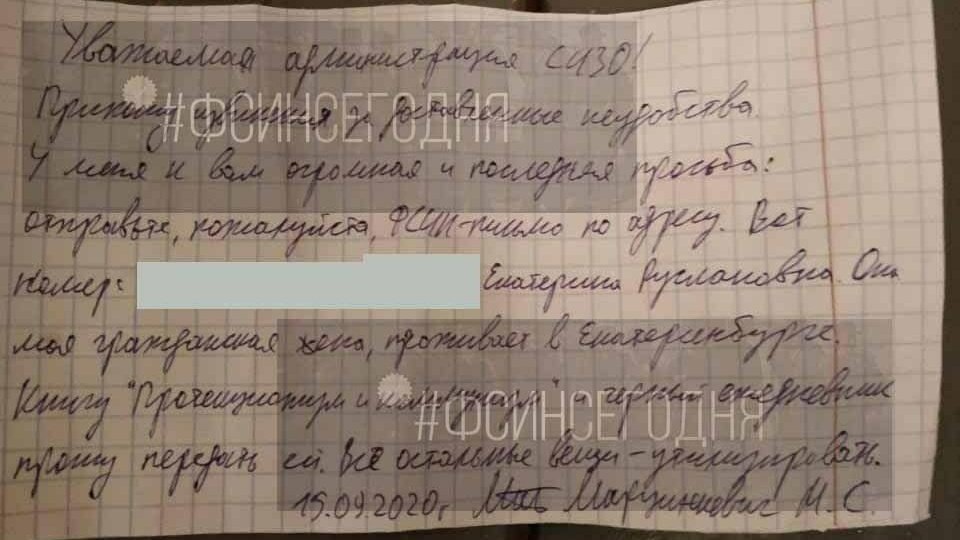 Уважаемая администрация СИЗО!
Приношу извинения за доставленные неудобства.
У меня к вам огромная и последняя просьба:
отправьте, пожалуйста, ФСИН-письмо по адресу. Вот
номер: Екатерина Руслановна. Она
моя гражданская жена, проживает в Екатеринбурге.
Книгу "Протекционизм и коммунизм" и черный ежедневник
прошу передать ей. Все остальные вещи - утилизировать.
15.09.2020г Марцинкевич М. С.
#ФСИНСЕГОДНЯ
#ФСИНСЕГОДНЯ